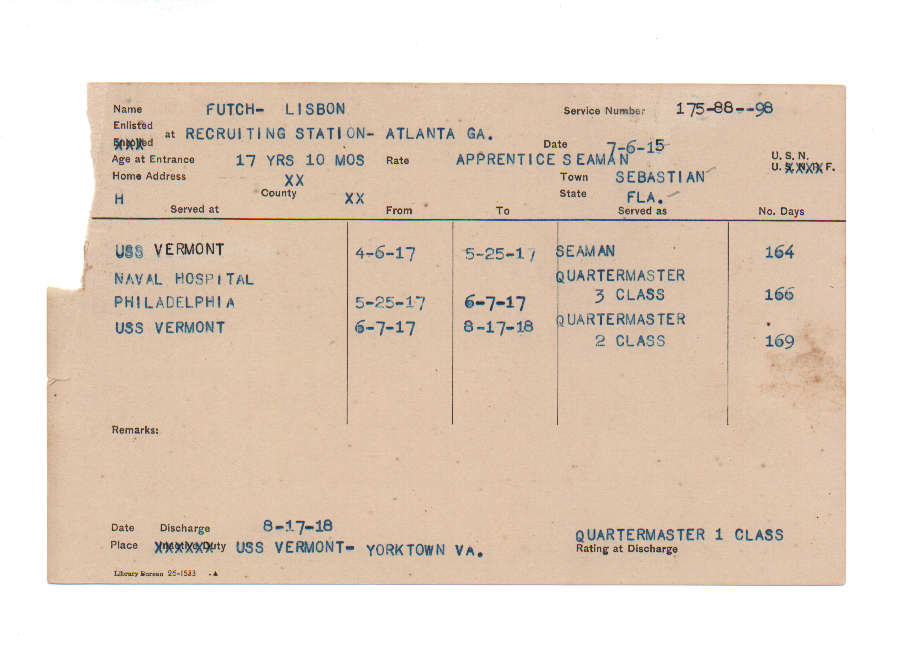 Name FUTCH- LISBON Service Number 175-88--98
Enlisted
at RECRUITING STATION- ATLANTA GA. Date 7-6-15
Age at Entrance 17 YRS 10 MOS Rate APPRENTICE SEAMAN U. S. N.
Home Address XX Town SEBASTIAN U. S. N. R. F.
H County XX State FLA.
Served at From To Served as No. Days
USS VERMONT 4-6-17 5-25-17 SEAMAN 164
NAVAL HOSPITAL QUARTERMASTER
PHILADELPHIA 5-25-17 6-7-17 3 CLASS 166
USS VERMONT 6-7-17 8-17-18 QUARTERMASTER
2 CLASS 169
Remarks:
Date Discharge 8-17-18 QUARTERMASTER 1 CLASS
Place Inactive Duty USS VERMONT- YORKTOWN VA. Rating at Discharge
Library Bureau 25-1533